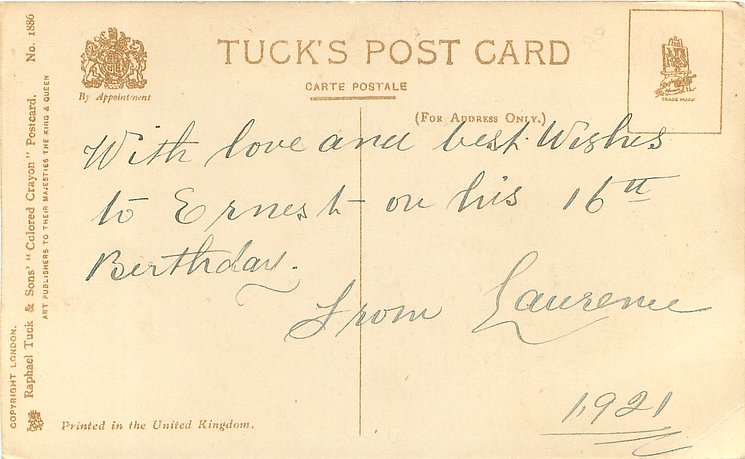 TUCK'S POST CARD
CARTE POSTALE
By Appointment
(FOR ADDRESS ONLY.)
TRADE MARK
With love and best Wishes
to Ernest on his 16th
Birthday.
From Laurence
1921
Printed in the United Kingdom.
COPYRIGHT LONDON.
Raphael Tuck & Sons' "Colored Crayon" Postcard. No. 1886
ART PUBLISHERS TO THEIR MAJESTIES THE KING & QUEEN